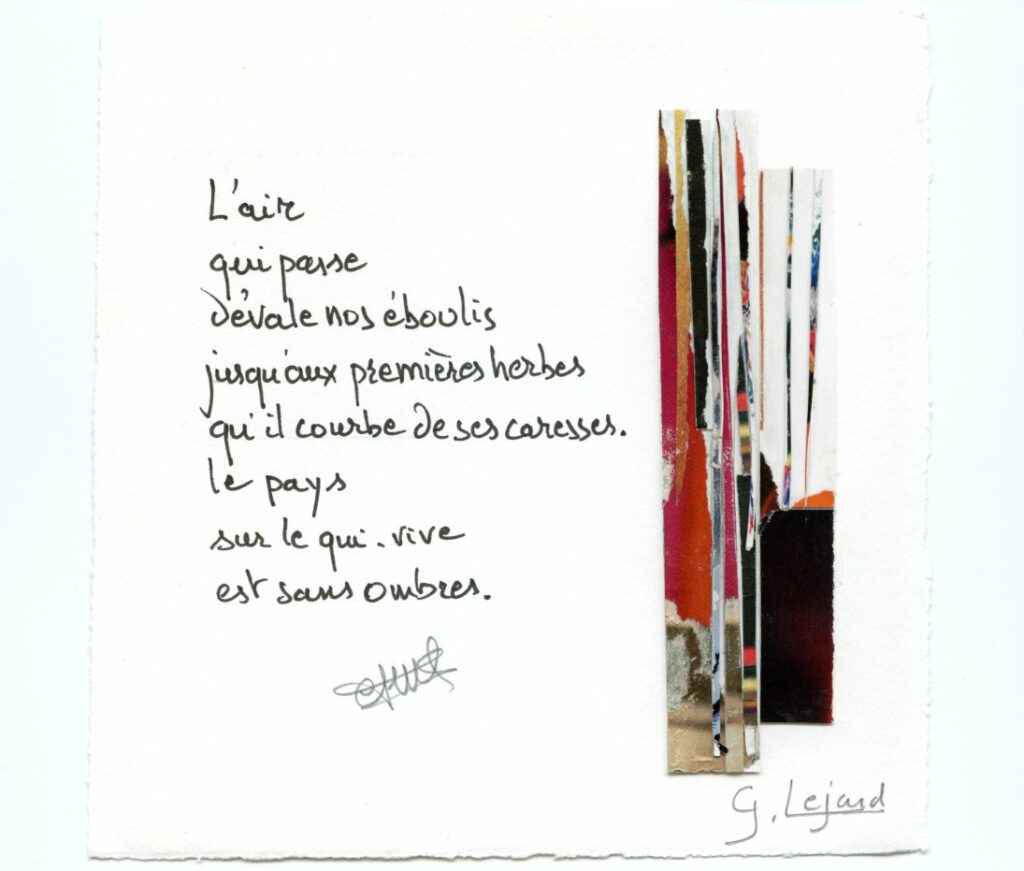 L'air
qui passe
dévale nos éboulis
jusqu'aux premières herbes
qu'il courbe de ses caresses.
le pays
sur le qui-vive
est sans ombres.
G. Lejard